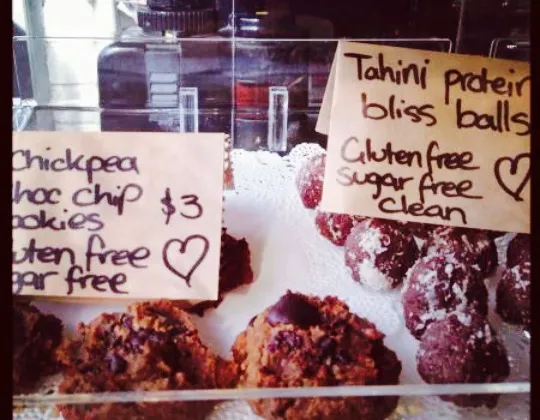 Chickpea
hoc chip
ookies
$3
uten free
gar free
Tahini protein
bliss balls
Gluten free
sugar free
clean